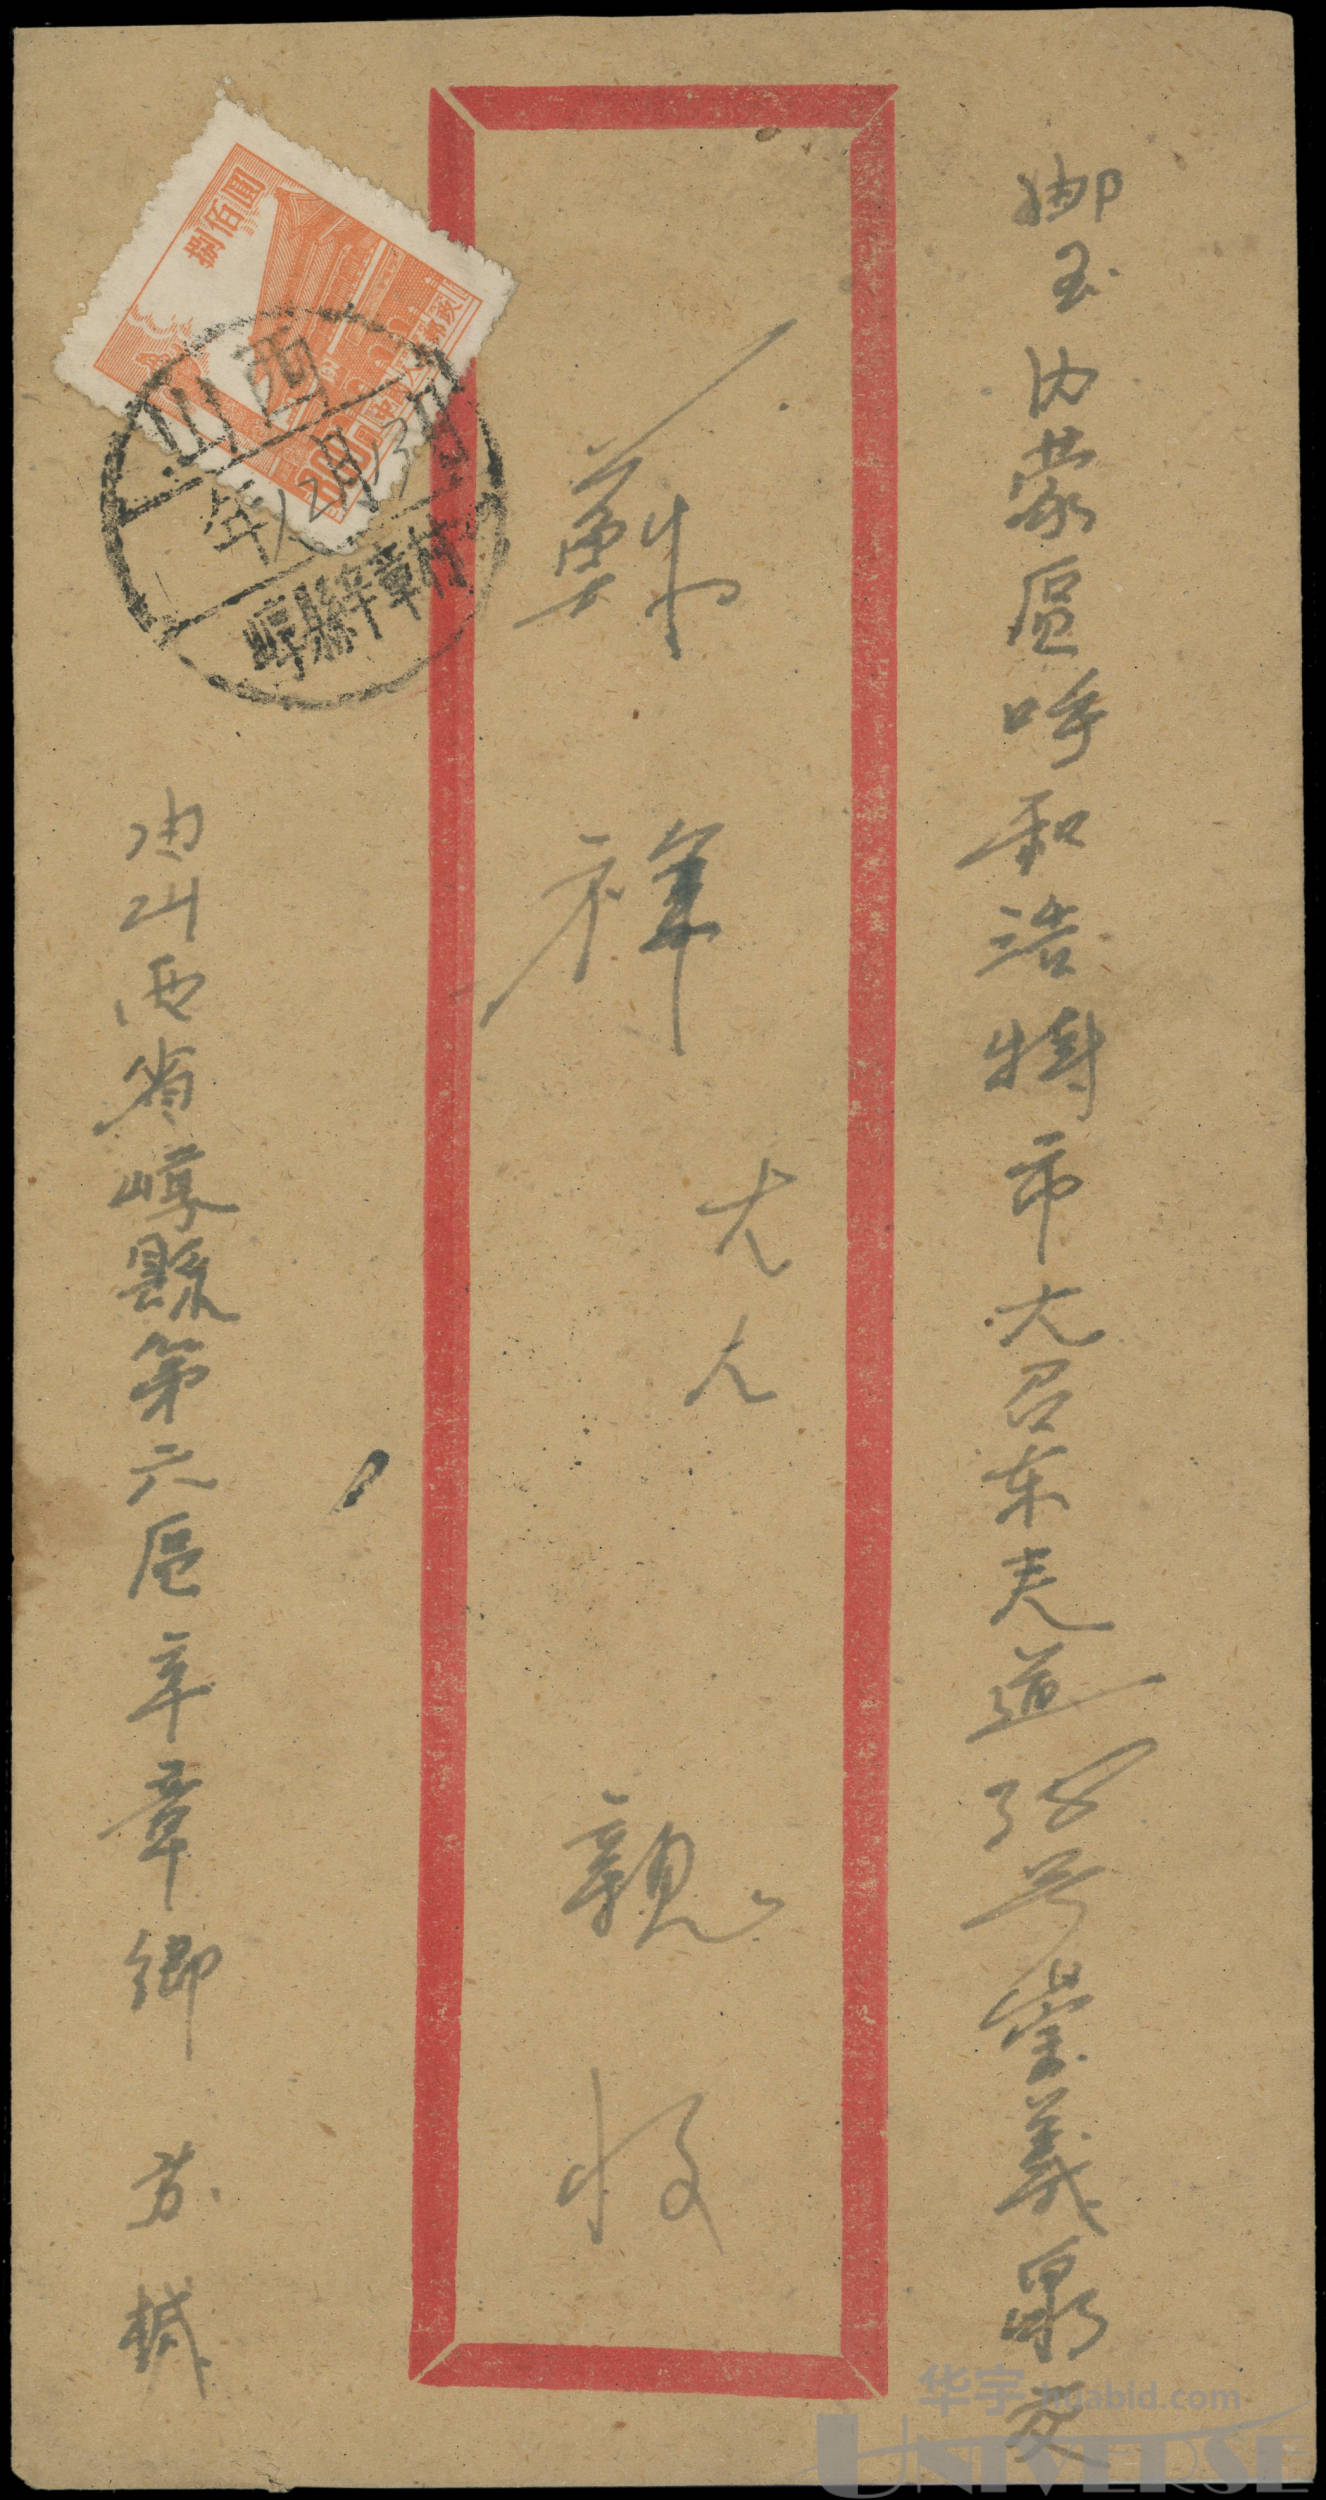 邮至内蒙區呼和浩特市大召东夹道38号崇義泉交
蘇祥大人親收
由山西省崞縣第六區辛章鄉苏缄
捌佰圓
800
山西
年12月13
崞縣辛章村
华宇 huabid.com
UNIVERSE